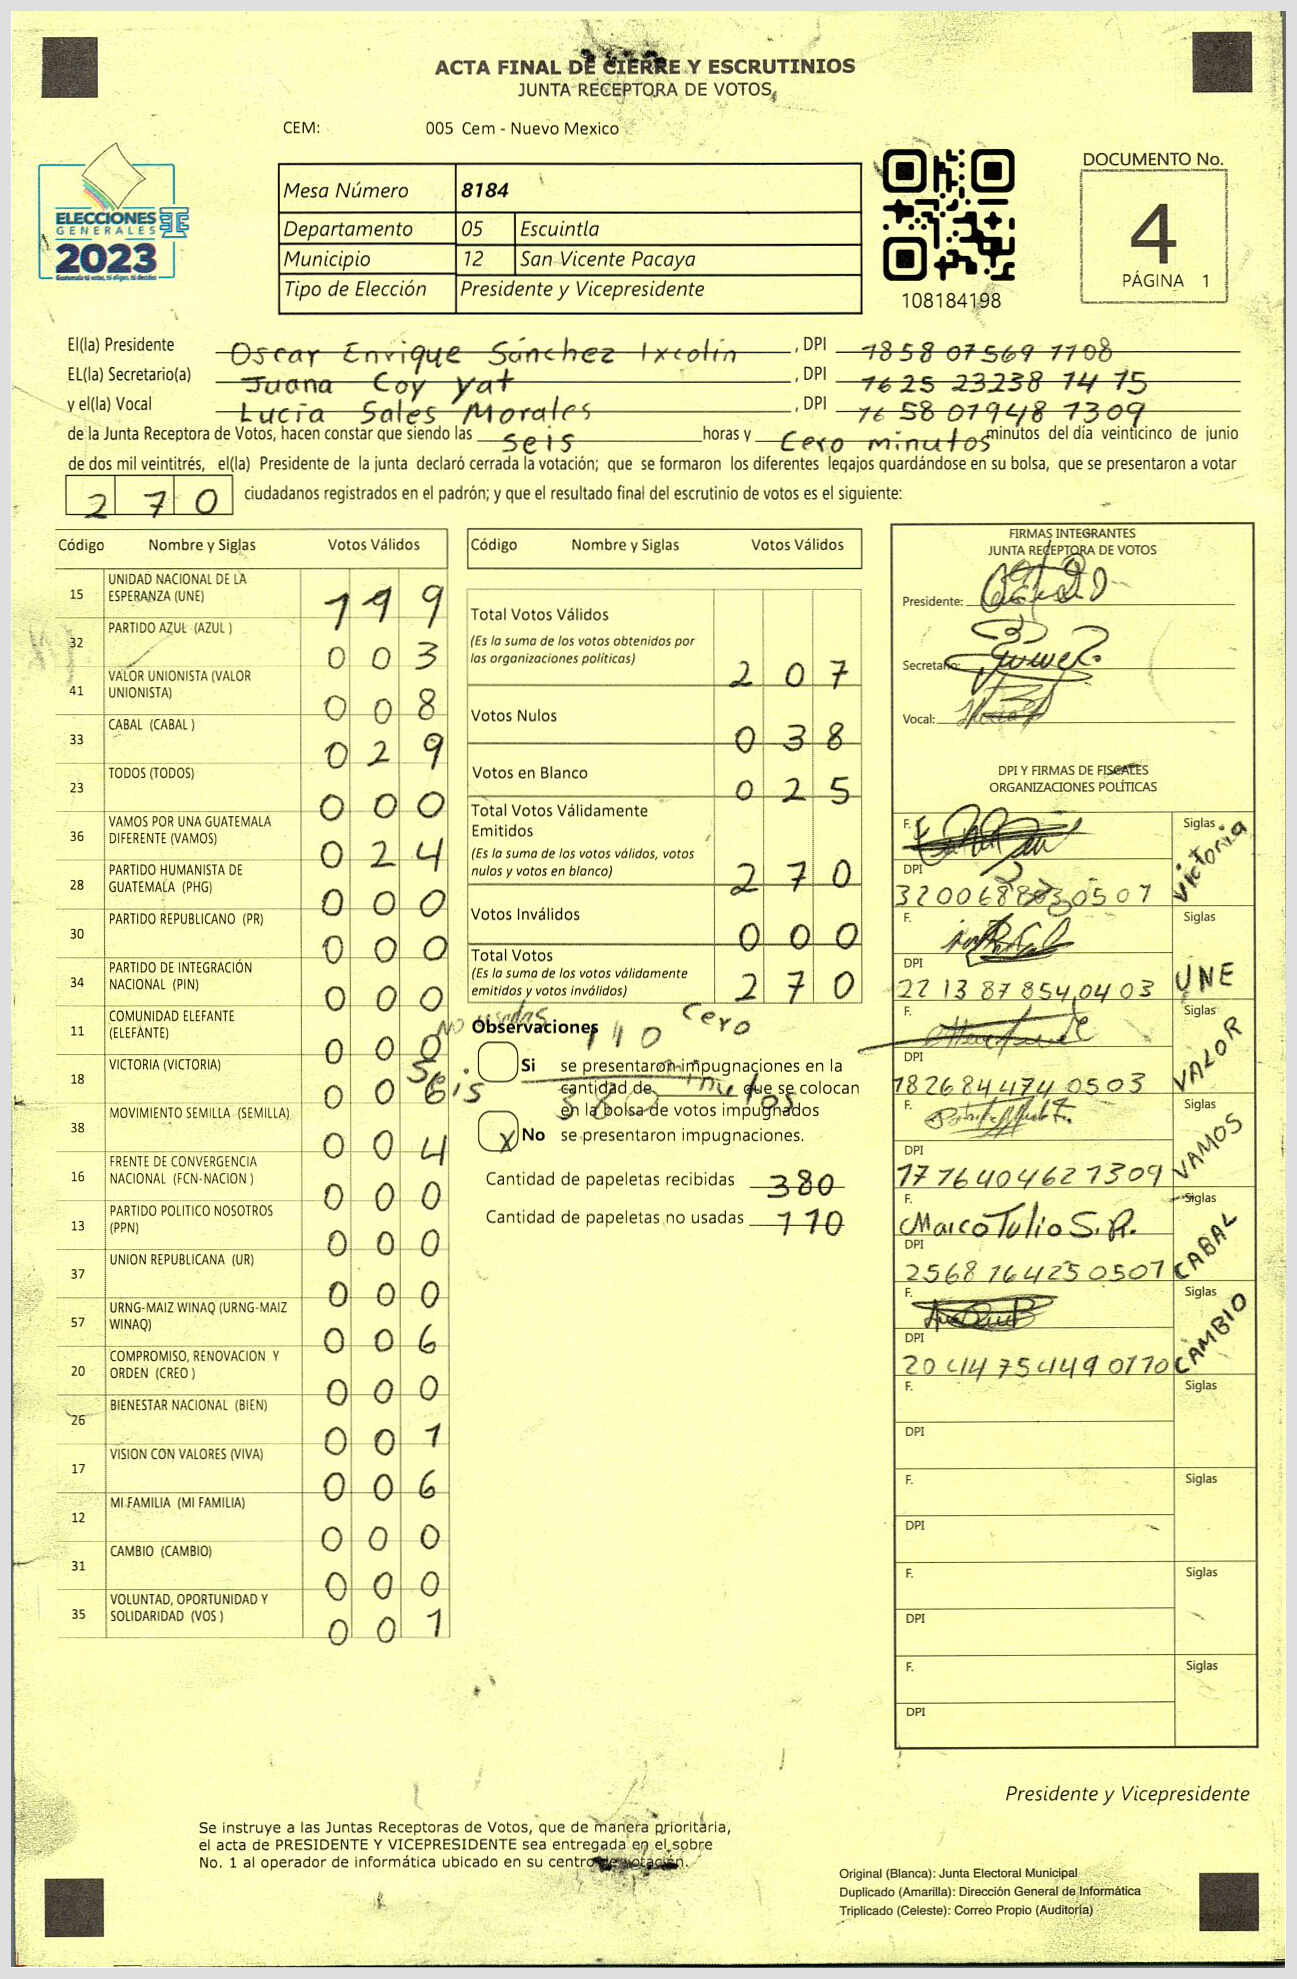 ACTA FINAL DE CIERRE Y ESCRUTINIOS
JUNTA RECEPTORA DE VOTOS
CEM: 005 Cem - Nuevo Mexico
ELECCIONES
GENERALES
2023
Guatemala tú votas, tú eliges, tú decides
Mesa Número 8184
Departamento 05 Escuintla
Municipio 12 San Vicente Pacaya
Tipo de Elección Presidente y Vicepresidente
108184198
DOCUMENTO No.
4
PÁGINA 1
El(la) Presidente Oscar Enrique Sánchez Ixcolín, DPI 1858 07569 1108
EL(la) Secretario(a) Juana Coy Yat, DPI 1625 23238 1415
y el(la) Vocal Lucía Sales Morales, DPI 1658 01948 1309
de la Junta Receptora de Votos, hacen constar que siendo las seis horas y Cero minutos minutos del día veinticinco de junio
de dos mil veintitrés, el(la) Presidente de la junta declaró cerrada la votación; que se formaron los diferentes legajos guardándose en su bolsa, que se presentaron a votar
270 ciudadanos registrados en el padrón; y que el resultado final del escrutinio de votos es el siguiente:
Código Nombre y Siglas Votos Válidos
15 UNIDAD NACIONAL DE LA ESPERANZA (UNE) 119
32 PARTIDO AZUL (AZUL ) 003
41 VALOR UNIONISTA (VALOR UNIONISTA) 008
33 CABAL (CABAL ) 029
23 TODOS (TODOS) 000
36 VAMOS POR UNA GUATEMALA DIFERENTE (VAMOS) 024
28 PARTIDO HUMANISTA DE GUATEMALA (PHG) 000
30 PARTIDO REPUBLICANO (PR) 000
34 PARTIDO DE INTEGRACIÓN NACIONAL (PIN) 000
11 COMUNIDAD ELEFANTE (ELEFANTE) 000
18 VICTORIA (VICTORIA) 006
38 MOVIMIENTO SEMILLA (SEMILLA) 004
16 FRENTE DE CONVERGENCIA NACIONAL (FCN-NACION ) 000
13 PARTIDO POLITICO NOSOTROS (PPN) 000
37 UNION REPUBLICANA (UR) 000
57 URNG-MAIZ WINAQ (URNG-MAIZ WINAQ) 006
20 COMPROMISO, RENOVACION Y ORDEN (CREO ) 000
26 BIENESTAR NACIONAL (BIEN) 001
17 VISION CON VALORES (VIVA) 006
12 MI FAMILIA (MI FAMILIA) 000
31 CAMBIO (CAMBIO) 000
35 VOLUNTAD, OPORTUNIDAD Y SOLIDARIDAD (VOS ) 001
Código Nombre y Siglas Votos Válidos
Total Votos Válidos 207
(Es la suma de los votos obtenidos por
las organizaciones políticas)
Votos Nulos 038
Votos en Blanco 025
Total Votos Válidamente
Emitidos 270
(Es la suma de los votos válidos, votos
nulos y votos en blanco)
Votos Inválidos 000
Total Votos 270
(Es la suma de los votos válidamente
emitidos y votos inválidos)
no usadas 110 cero
seis minutos
380
Observaciones
Si se presentaron impugnaciones en la
cantidad de que se colocan
en la bolsa de votos impugnados
X No se presentaron impugnaciones.
Cantidad de papeletas recibidas 380
Cantidad de papeletas no usadas 110
FIRMAS INTEGRANTES
JUNTA RECEPTORA DE VOTOS
Presidente:
Secretario:
Vocal:
DPI Y FIRMAS DE FISCALES
ORGANIZACIONES POLÍTICAS
F. Siglas Victoria
DPI
F. Siglas UNE
DPI 22 13 87 854 04 03
F. Siglas VALOR
DPI 182684474 0503
F. Siglas VAMOS
DPI 1776404621309
F. Marco Tulio S. R. Siglas CABAL
DPI 2568 16425 0507
F. Siglas CAMBIO
DPI 2044 75449 0110
F. Siglas
DPI
F. Siglas
DPI
F. Siglas
DPI
F. Siglas
DPI
Presidente y Vicepresidente
Se instruye a las Juntas Receptoras de Votos, que de manera prioritaria,
el acta de PRESIDENTE Y VICEPRESIDENTE sea entregada en el sobre
No. 1 al operador de informática ubicado en su centro de votación.
Original (Blanca): Junta Electoral Municipal
Duplicado (Amarilla): Dirección General de Informática
Triplicado (Celeste): Correo Propio (Auditoría)